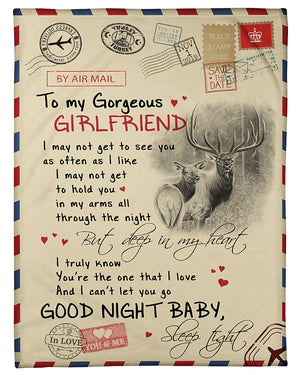 TURKEY
TURKEY
NOV
PLACE
STAMP
HERE
SAVE
THE
DATE
BY AIR MAIL
To my Gorgeous
GIRLFRIEND
I may not get to see you
as often as I like
I may not get
to hold you
in my arms all
through the night
But deep in my heart
I truly know
You're the one that I love
And I can't let you go
GOOD NIGHT BABY,
Sleep tight
In LOVE
YOU & ME